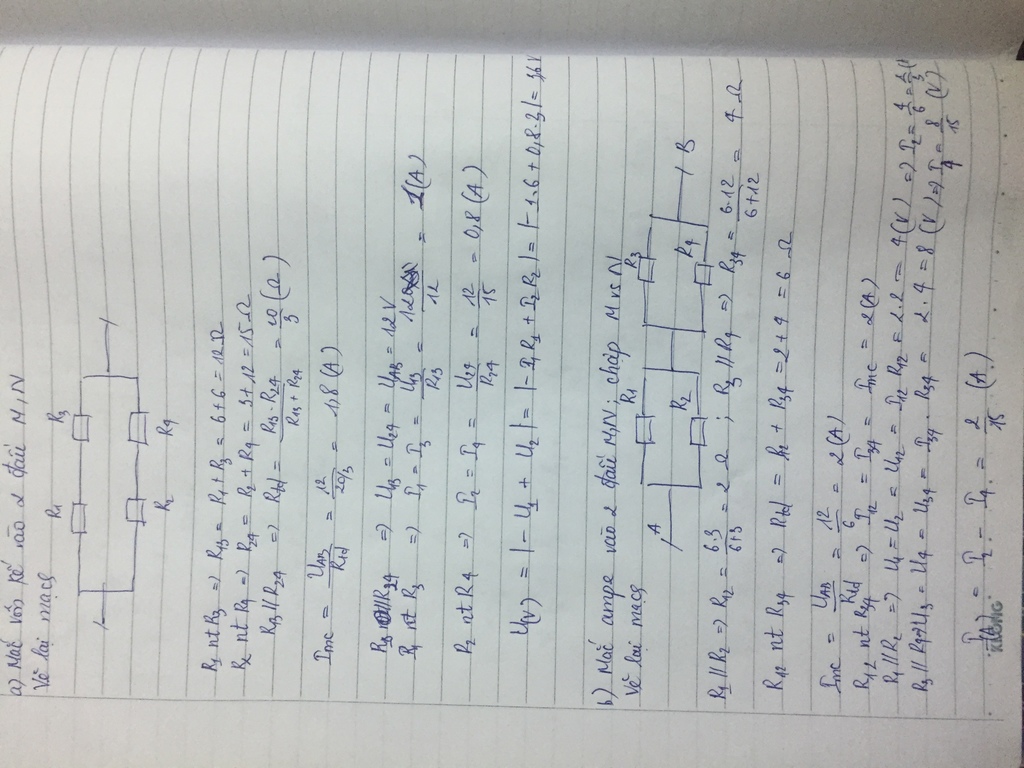 a) Mắc vôn kế vào 2 đầu M, N
Vẽ lại mạch
R1 R3
R2 R4
R1 nt R3 => R13 = R1 + R3 = 6 + 6 = 12 Ω
R2 nt R4 => R24 = R2 + R4 = 3 + 12 = 15 Ω
R13 // R24 => Rtđ = R13 . R24 / R13 + R24 = 20/3 (Ω)
Imc = UAB / Rtđ = 12 / 20/3 = 1,8 (A)
R13 // R24 => U13 = U24 = UAB = 12 V
R1 nt R3 => I1 = I3 = U13 / R13 = 12 / 12 = 1 (A)
R2 nt R4 => I2 = I4 = U24 / R24 = 12 / 15 = 0,8 (A)
U(V) = |- U1 + U2| = |- I1R1 + I2R2| = |- 1.6 + 0,8.3| = 3,6 V
b) Mắc ampe vào 2 đầu M, N; chập M vs N
Vẽ lại mạch
A R1 R3 B
R2 R4
R1 // R2 => R12 = 6.3 / 6+3 = 2 Ω ; R3 // R4 => R34 = 6.12 / 6+12 = 4 Ω
R12 nt R34 => Rtđ = R12 + R34 = 2 + 4 = 6 Ω
Imc = UAB / Rtđ = 12 / 6 = 2 (A)
R12 nt R34 => I12 = I34 = Imc = 2 (A)
R1 // R2 => U1 = U2 = U12 = I12 R12 = 2.2 = 4 (V) => I2 =
R3 // R4 => U3 = U4 = U34 = I34 . R34 = 2.4 = 8 (V) => I4 = 8 / 15 (V)
I(A) = I2 - I4 = 2 / 15 (A)
KLONG